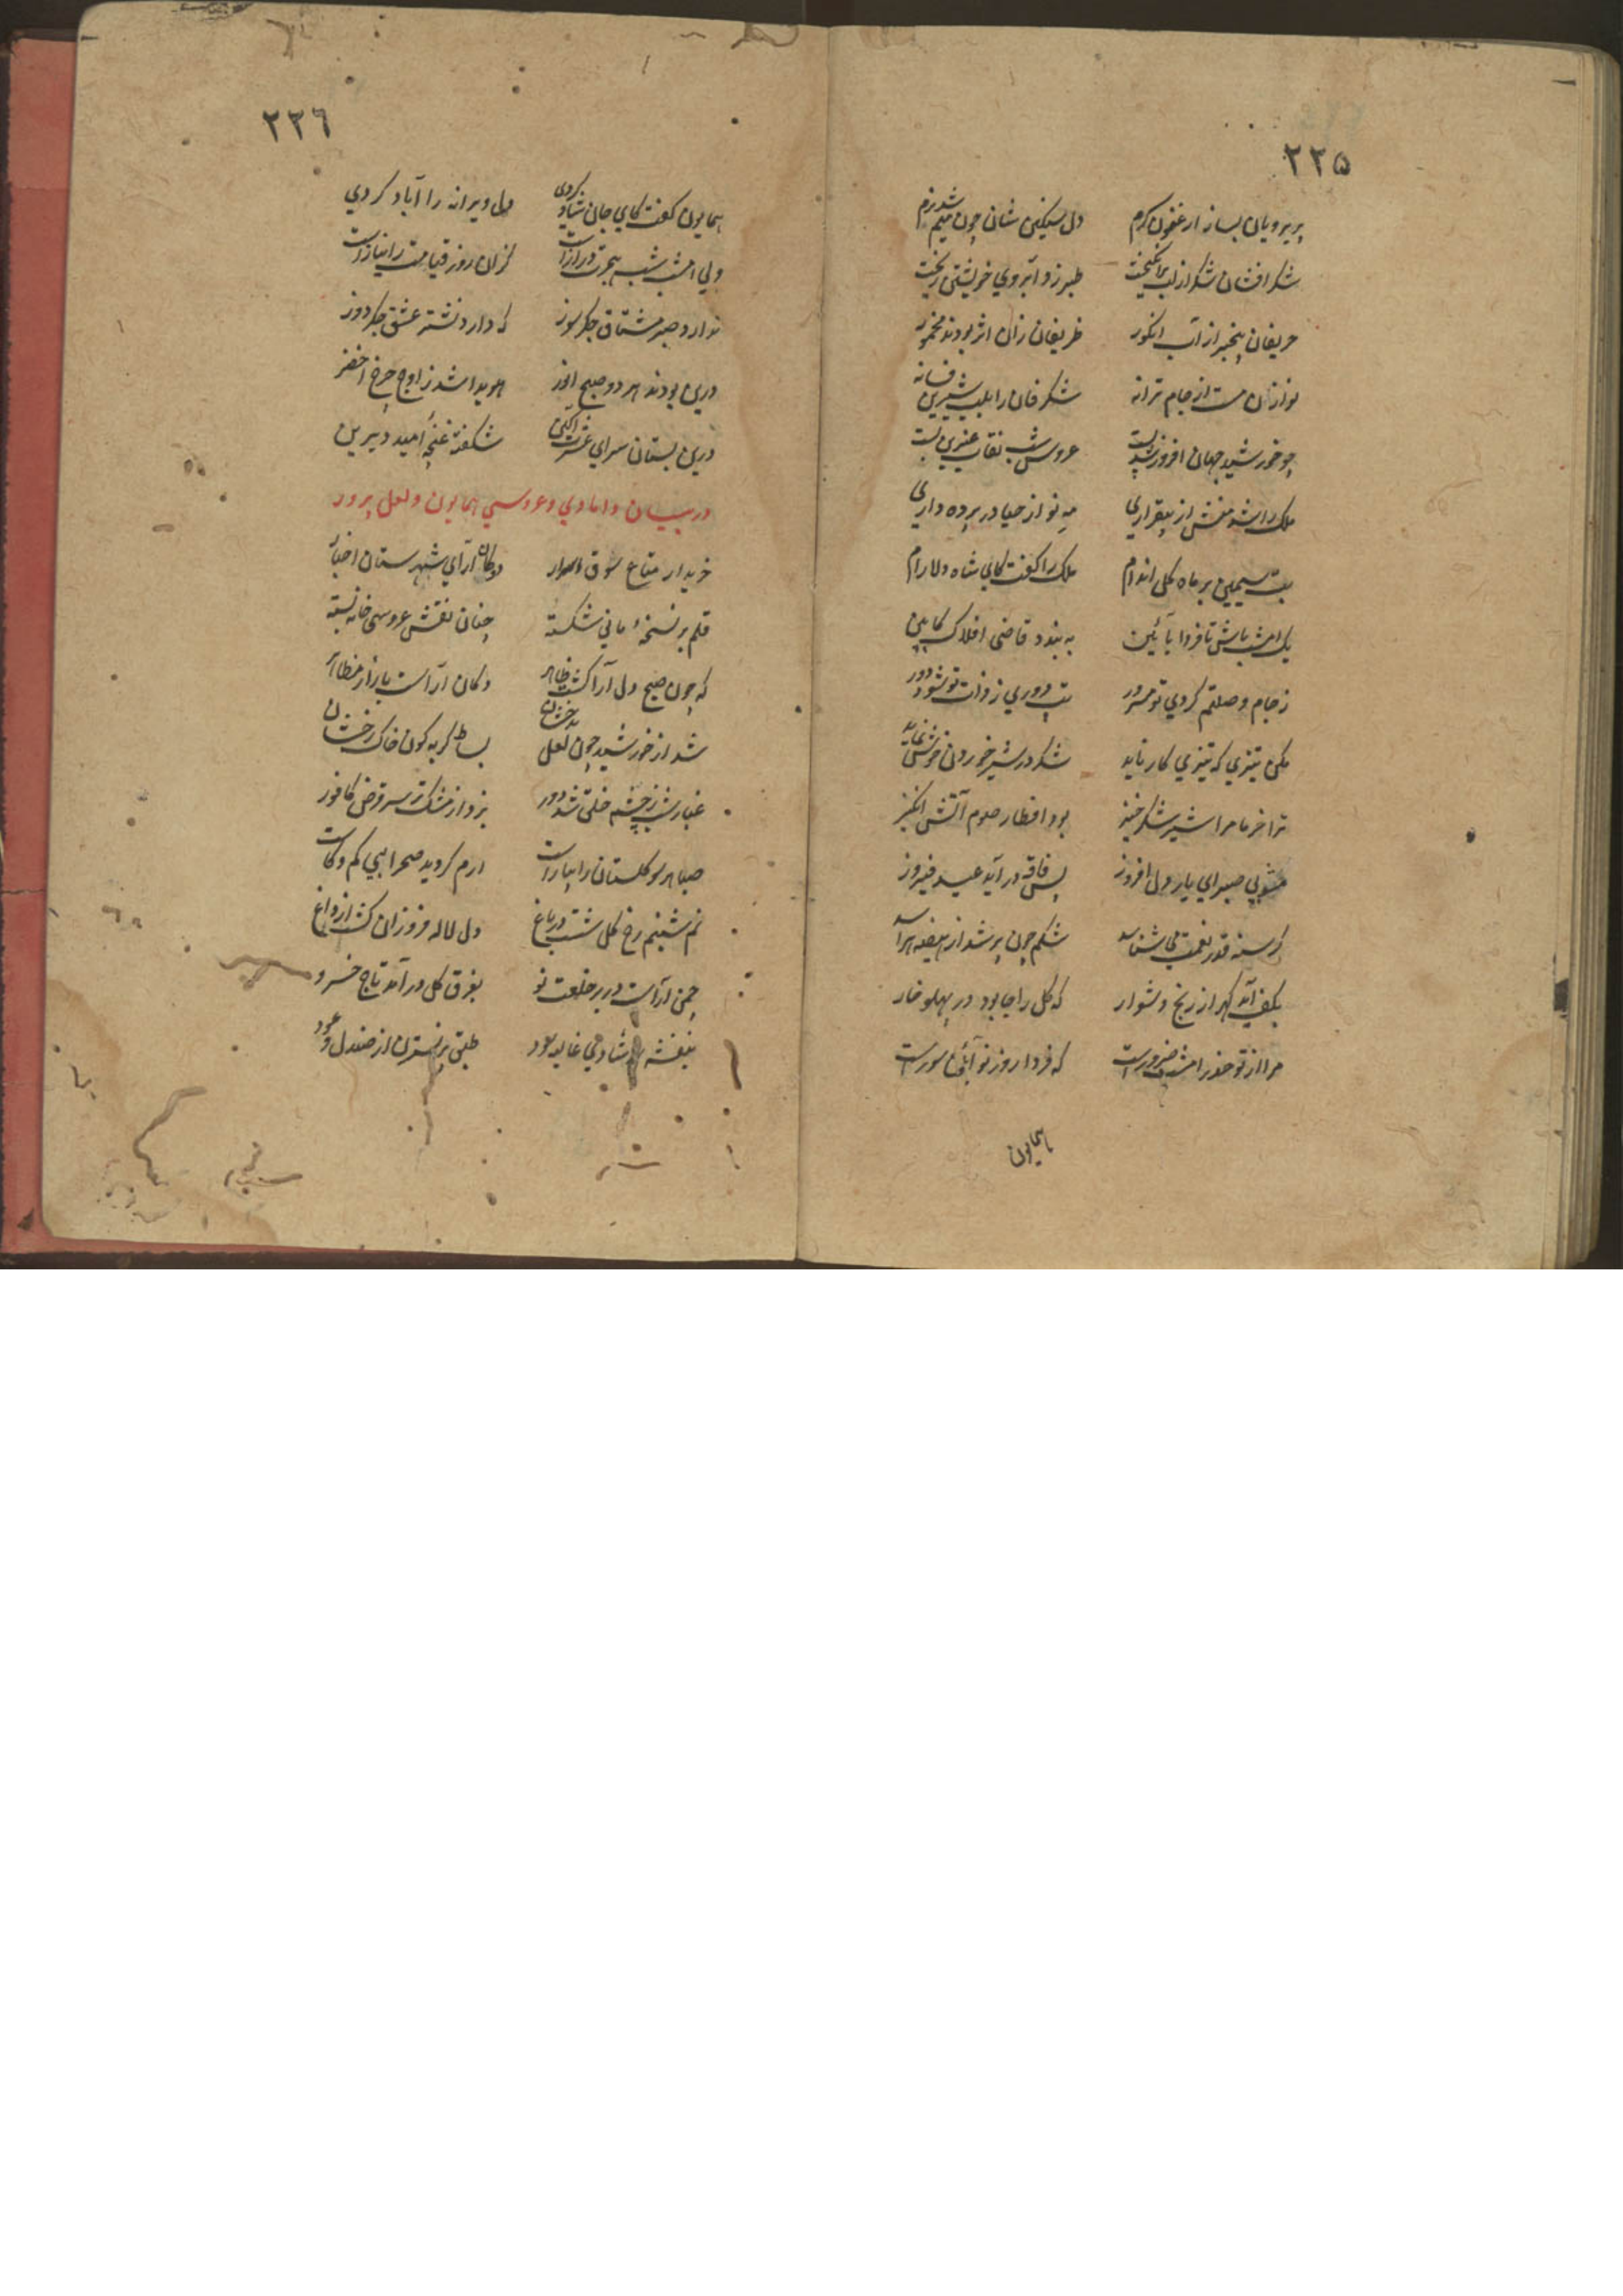 ٢٢٥
پریرویان بساز ارغنون گرم دل سنگین شان چون میم شد نرم
شکر افشان شکر از لب برانگیخت طبرزد آبروی خویشتن ریخت
حریفان بیخبر از آب انگور ظریفان زان اثر بودند مخمور
نوازان مست از جام ترانه شکرفان را بلب شیرین فسانه
چو خورشید جهان افروز بست عروس شب نقاب عنبرین بست
ملک را شد منش از بیقراری مه نو از حیا در پرده داری
بت سیمین بر ماه گل اندام ملک را گفت کای شاه دلارام
یک امشب باش تا فردا بآئین به بندد قاضی افلاک کابین
ز جام وصلتم کردی تو مسرور تب دوری ز ذات تو شود دور
مکن تیزی که تیزی کار ناید شکر در شیر خوردن خوش نماید
ترا خرما مرا شیر شکر خیز بود افطار صوم آتش انگیز
مشو بی صبر ای یار دل افروز پس فاقه در آید عید فیروز
گرسنه قدر نعمت می شناسد شکم چون پر شد از هیضه هراسد
بکف آید گهر از رنج دشوار که گل را جا بود در پهلو خار
مرا از تو حذر امشب ضرورست که فردا روز نو آئین سورست
همایون
٢٢٦
همایون گفت کای جان شاد کردی دل ویرانه را آباد کردی
ولی امشب شب هجرت درازست کزان روز قیامت را نیازست
ندارد صبر مشتاق جگرسوز که دارد نشتر عشق جگردوز
درین بودند هر دو صبح انور هویدا شد ز اوج چرخ اخضر
درین بستان سرای عشرت آگین شکفته غنچه امید دیرین
در بیان دامادی و عروسی همایون و لعل پرور
خریدار متاع سوق اسرار دوکان آرای شهرستان اخبار
قلم بر نسخهٔ مانی شکسته چنان نقش عروسی خانه بسته
که چون صبح دل آرا گشت ظاهر دکان آراست بازار مظاهر
شد از خورشید چون لعل بدخشان بساط گربه گون خاک رخشان
غبار شب ز چشم خلق شد دور بزد از مشک تر سر قرص کافور
صبا هر سو گلستان را بیاراست ارم گردید صحرا بی کم و کاست
نم شبنم رخ گل شست در باغ دل لاله فروزان گشت از داغ
چمن آراست در بر خلعت نو بفرق گل در آمد تاج خسرو
بنفشه شادمی غالیه سود طبق بر نسترن از صندل و عود